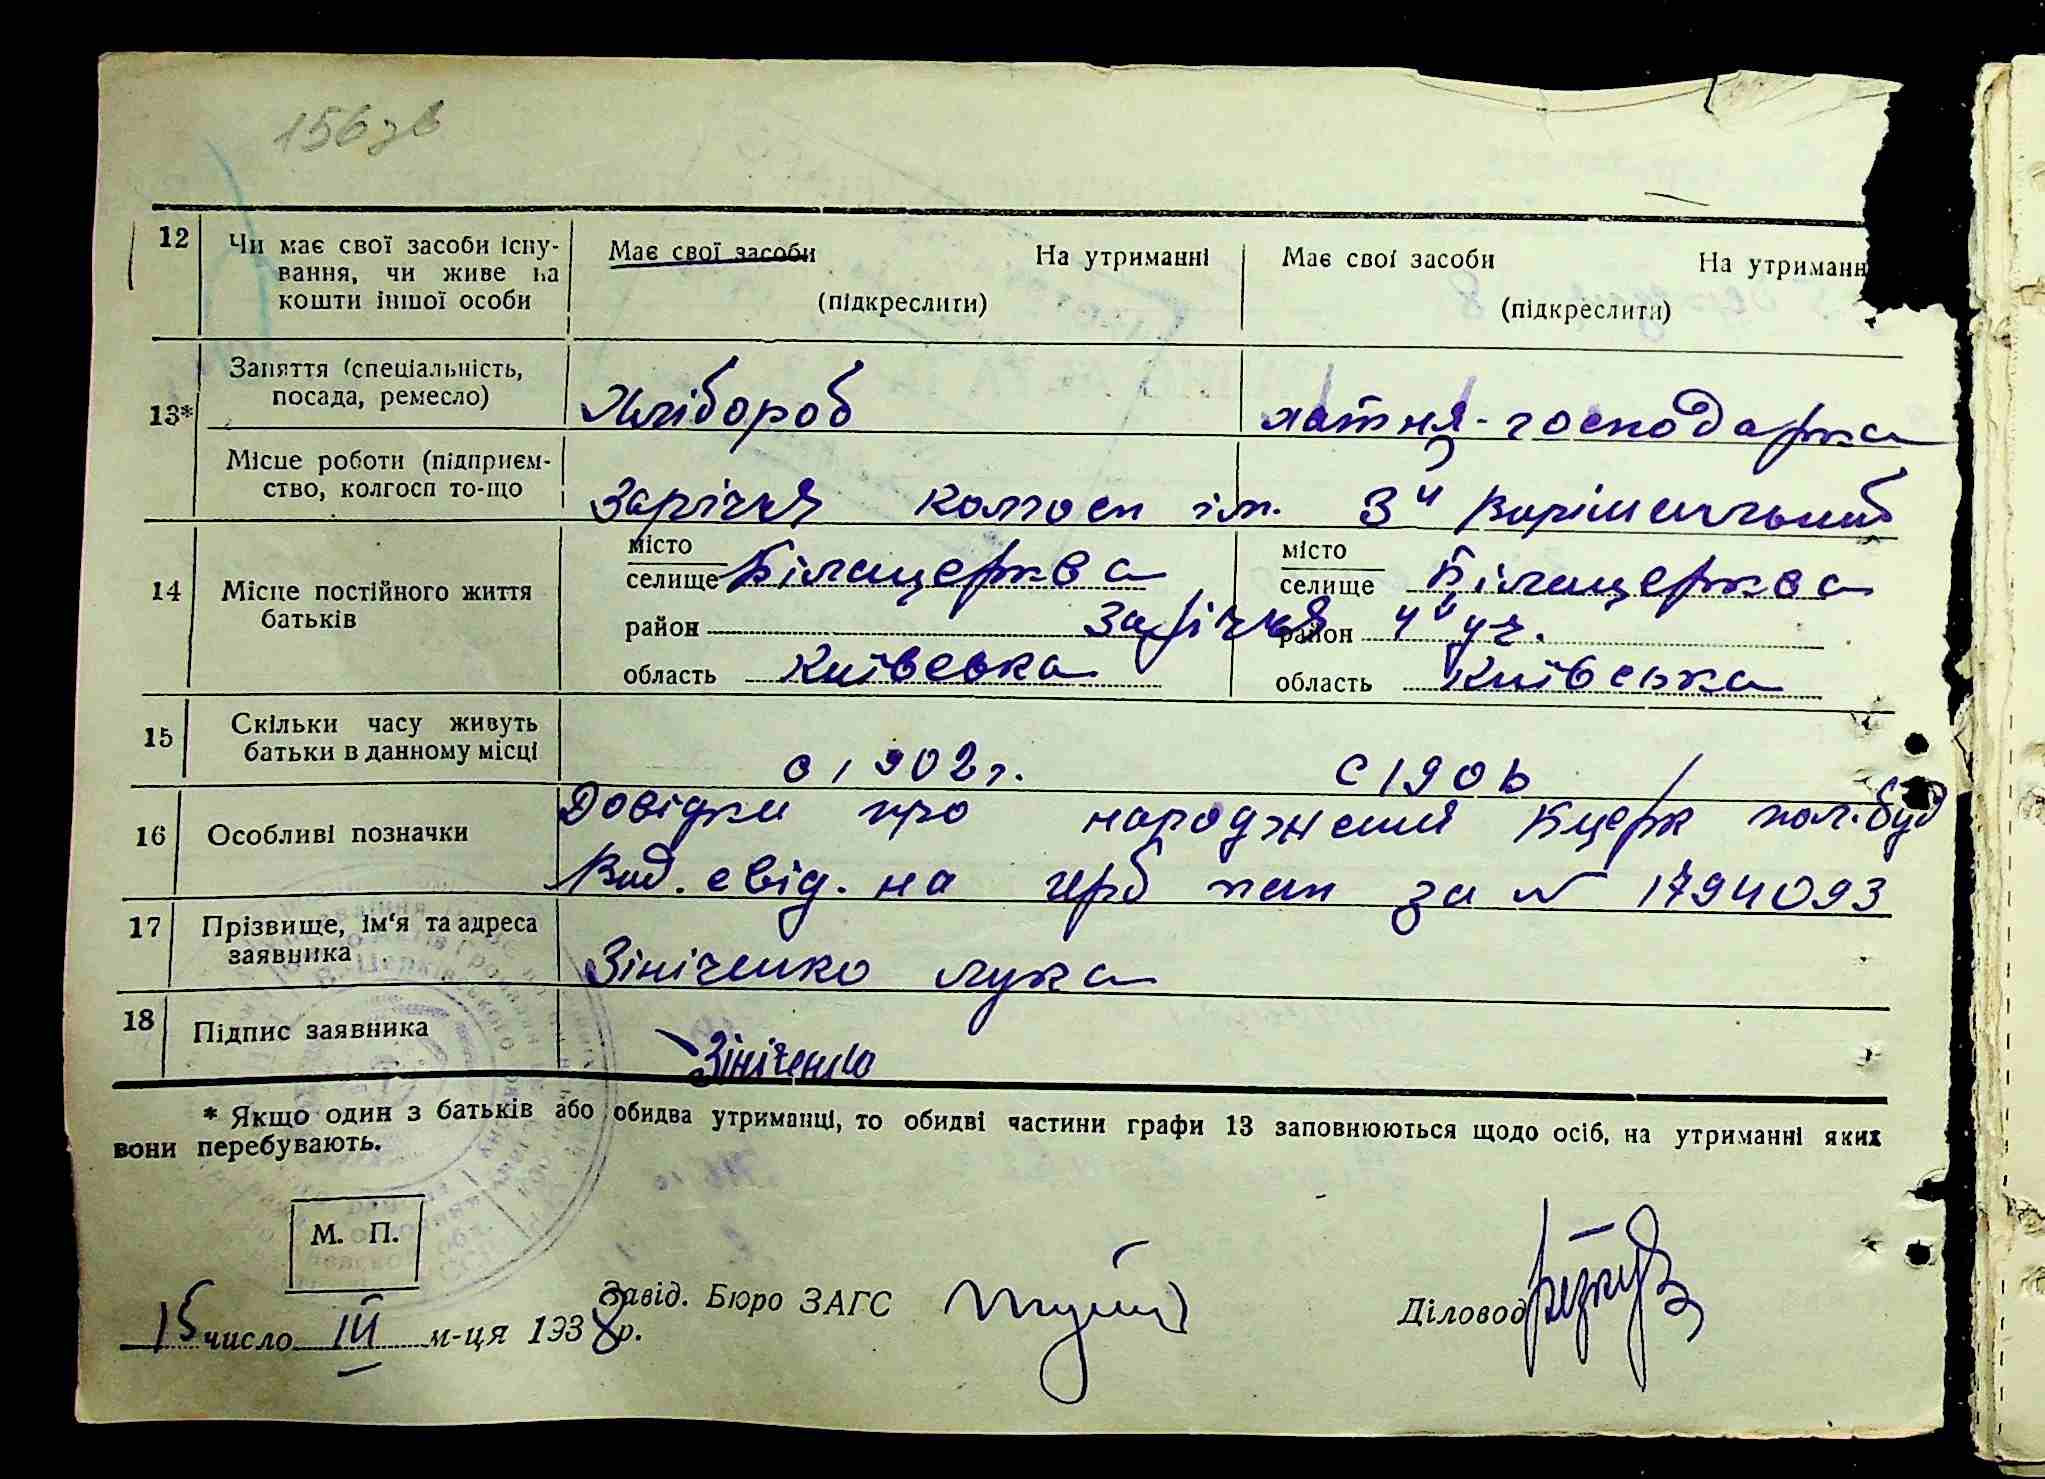 156 зв
12 Чи має свої засоби існу-
вання, чи живе на
кошти іншої особи
Має свої засоби На утриманні
(підкреслити)
Має свої засоби На утриманн
(підкреслити)
13* Заняття (спеціальність,
посада, ремесло)
Хлібороб хатня-господарка
Місце роботи (підприєм-
ство, колгосп то-що
Заріччя колгосп ім. 3й Вирішальний
14 Місце постійного життя
батьків
місто
селище Білацерква
район Заріччя
область Київська
місто
селище Білацерква
район 4й уч.
область Київська
15 Скільки часу живуть
батьки в данному місці
с 1902 г. с 190
16 Особливі позначки
Довідки про народження Бцерк пол.буд
Вид. свід. на герб пап за № 1794093
17 Прізвище, ім'я та адреса
заявника
Зініченко Лука
18 Підпис заявника
Зініченко
* Якщо один з батьків або обидва утриманці, то обидві частини графи 13 заповнюються щодо осіб, на утриманні яких
вони перебувають.
М. П.
15 число III м-ця 1938 р.
Завід. Бюро ЗАГС
Діловод